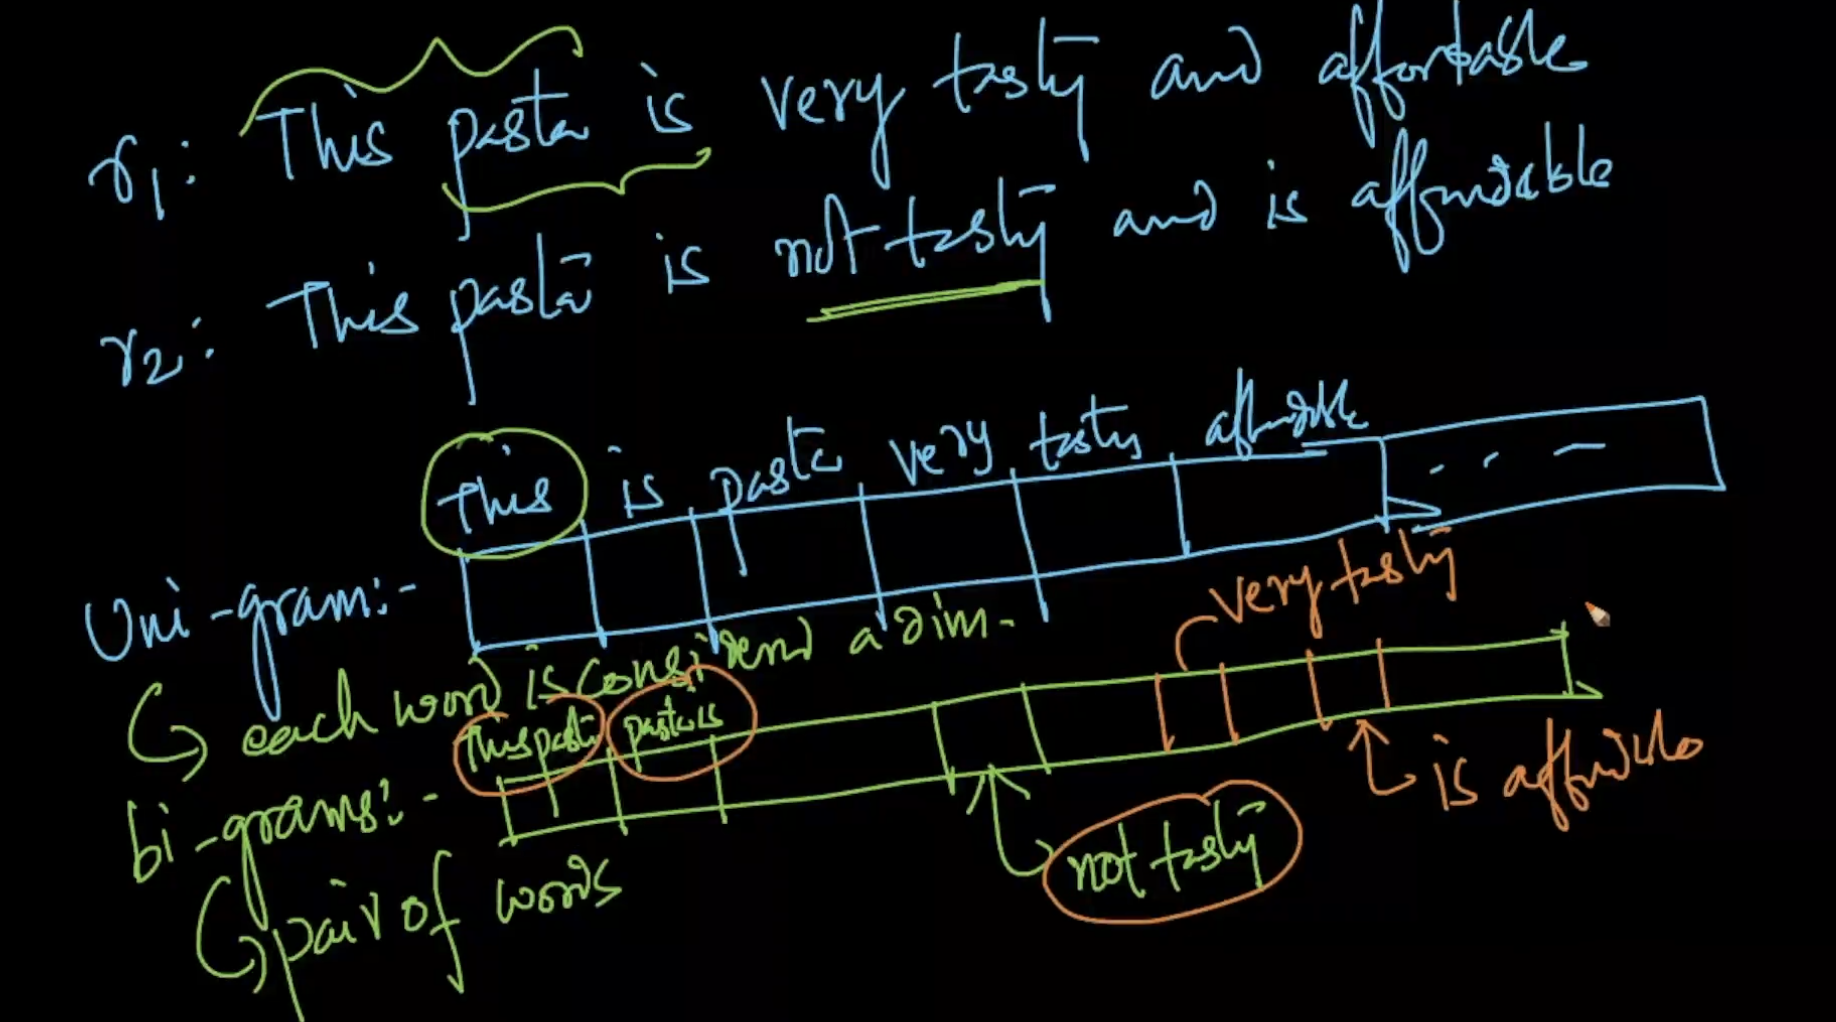 r1: This pasta is very tasty and affordable
r2: This pasta is not tasty and is affordable
This is pasta very tasty affordable
Uni-gram:-
each word is considered a dim.
very tasty
This pasta pasta is
bi-grams:-
is affordable
not tasty
pair of words